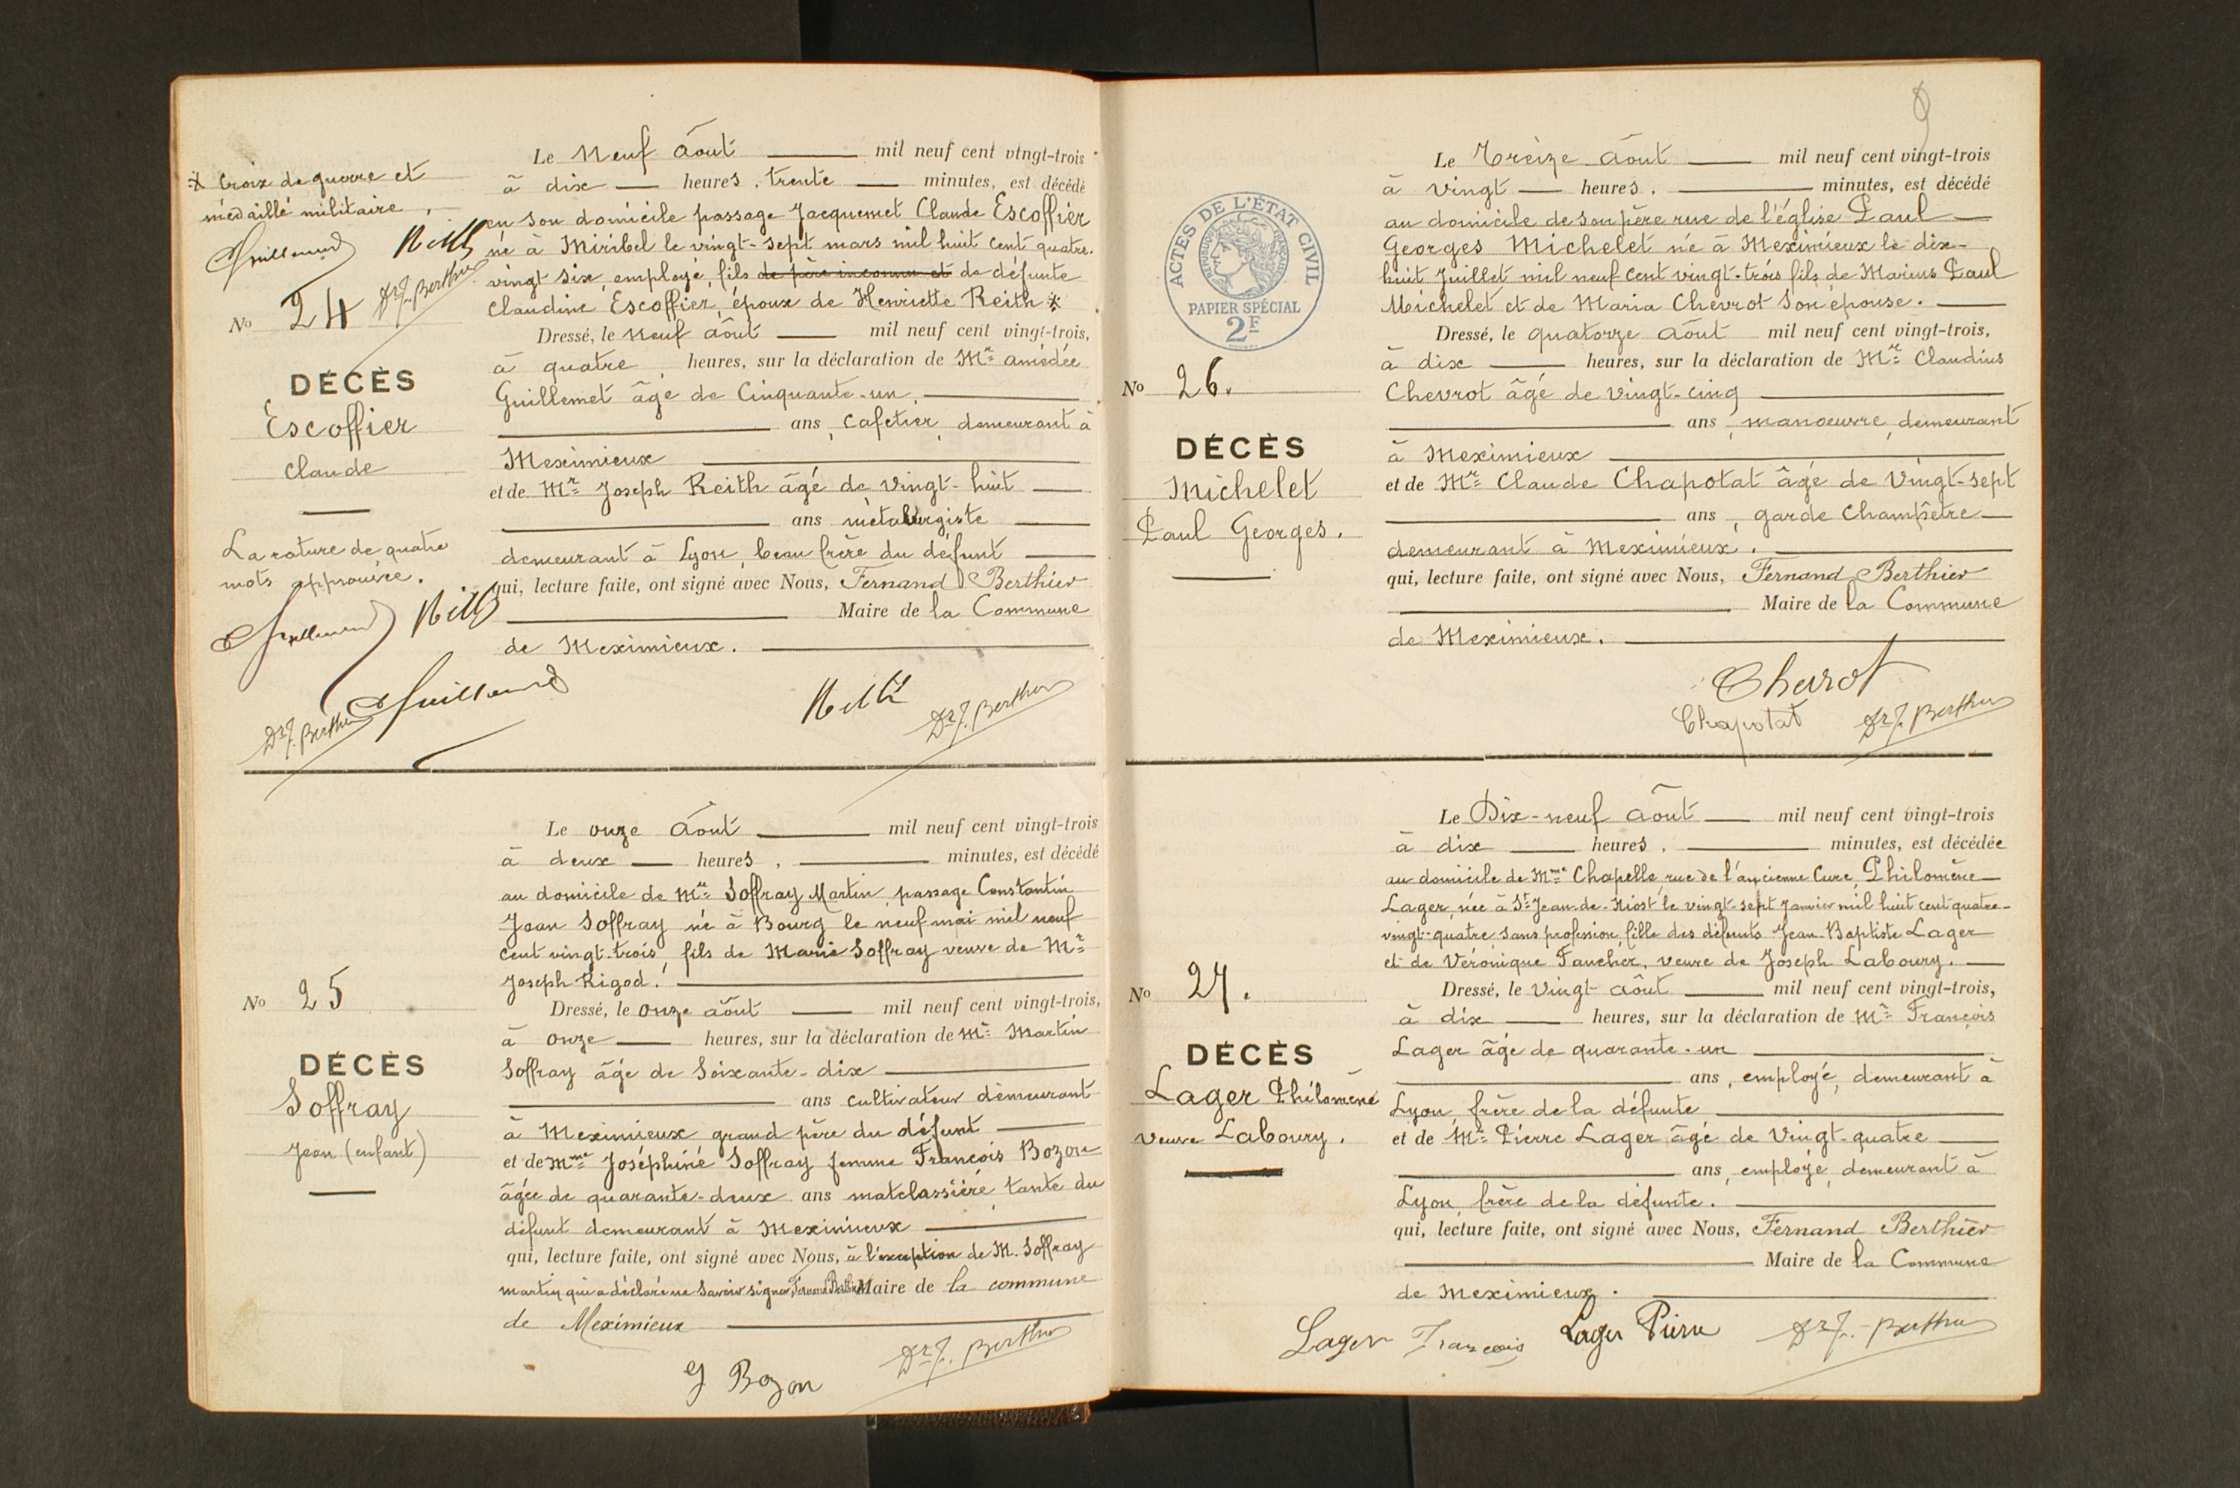 * Croix de guerre et
médaillé militaire.
Nº 24
DÉCÈS
Escoffier
Claude
La rature de quatre
mots approuvée.
Le Neuf Août mil neuf cent vingt-trois
à dix heures, trente minutes, est décédé
en son domicile passage Jacquemet Claude Escoffier
né à Miribel le vingt-sept mars mil huit cent quatre-
vingt six, employé, fils de père inconnu et de défunte
Claudine Escoffier, époux de Henriette Reith *
Dressé, le neuf août mil neuf cent vingt-trois,
à quatre heures, sur la déclaration de Mr Amédée
Guillemet âgé de Cinquante-un,
ans, Cafetier, demeurant à
Meximieux
et de Mr Joseph Reith âgé de vingt-huit
ans métallurgiste
demeurant à Lyon, beau frère du défunt
qui, lecture faite, ont signé avec Nous, Fernand Berthier
Maire de la Commune
de Meximieux.
Dr F. Berthier
Nº 25
DÉCÈS
Soffray
Jean (enfant)
Le onze Août mil neuf cent vingt-trois
à deux heures, minutes, est décédé
au domicile de Mr Soffray Martin, passage Constantin
Jean Soffray né à Bourg le neuf mai mil neuf
cent vingt-trois, fils de Marie Soffray veuve de Mr
Joseph Rigod.
Dressé, le onze août mil neuf cent vingt-trois,
à onze heures, sur la déclaration de Mr Martin
Soffray âgé de Soixante-dix
ans cultivateur demeurant
à Meximieux grand père du défunt
et de Mme Joséphine Soffray femme François Bozon
âgée de quarante-deux ans matelassière, tante du
défunt demeurant à Meximieux
qui, lecture faite, ont signé avec Nous, à l'exception de M. Soffray
Martin qui a déclaré ne savoir signer, Fernand Berthier Maire de la commune
de Meximieux
J Bozon
Dr F. Berthier
9
ACTES DE L'ÉTAT CIVIL
RÉPUBLIQUE FRANÇAISE
PAPIER SPÉCIAL
2F
Nº 26.
DÉCÈS
Michelet
Paul Georges.
Le Treize Août mil neuf cent vingt-trois
à vingt heures. minutes, est décédé
au domicile de son père rue de l'église Paul
Georges Michelet né à Meximieux le dix-
huit Juillet mil neuf cent vingt-trois fils de Marius Paul
Michelet et de Maria Chevrot son épouse.
Dressé, le quatorze Août mil neuf cent vingt-trois,
à dix heures, sur la déclaration de Mr Claudius
Chevrot âgé de vingt-cinq
ans, manoeuvre, demeurant
à Meximieux
et de Mr Claude Chapotat âgé de Vingt-sept
ans, garde Champêtre
demeurant à Meximieux.
qui, lecture faite, ont signé avec Nous, Fernand Berthier
Maire de la Commune
de Meximieux.
Chevrot
Chapotat
Dr F. Berthier
Nº 27.
DÉCÈS
Lager Philomène
Veuve Laboury.
Le Dix-neuf Août mil neuf cent vingt-trois
à dix heures. minutes, est décédée
au domicile de Mme Chapelle, rue de l'ancienne Cure, Philomène
Lager, née à St Jean-de-Niost le vingt-sept janvier mil huit cent quatre-
vingt-quatre sans profession, fille des défunts Jean-Baptiste Lager
et de Véronique Faucher, veuve de Joseph Laboury.
Dressé, le Vingt août mil neuf cent vingt-trois,
à dix heures, sur la déclaration de Mr François
Lager âgé de quarante-un
ans, employé, demeurant à
Lyon, frère de la défunte
et de Mr Pierre Lager âgé de Vingt-quatre
ans, employé, demeurant à
Lyon, frère de la défunte.
qui, lecture faite, ont signé avec Nous, Fernand Berthier
Maire de la Commune
de Meximieux.
Lager François
Lager Pierre
Dr F. Berthier